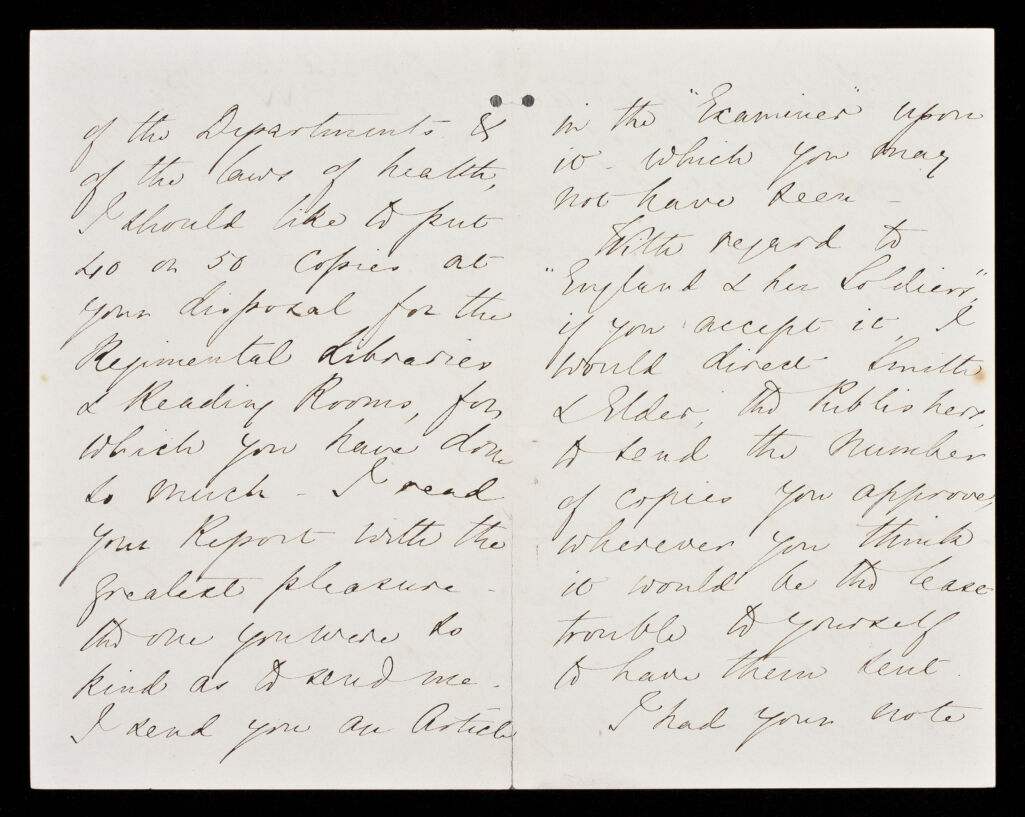 of the Departments &
of the laws of health,
I should like to put
40 or 50 copies at
your disposal for the
Regimental Libraries
& Reading Rooms, for
which you have done
so much - I read
your Report with the
greatest pleasure -
the one you were so
kind as to send me.
I send you an Article
in the "Examiner" upon
it - which you may
not have seen -
With regard to
"England & her Soldiers",
if you accept it, I
would direct Smith
& Elder, the Publishers,
to send the number
of copies you approve,
wherever you think
it would be the least
trouble to yourself
to have them sent.
I had your note